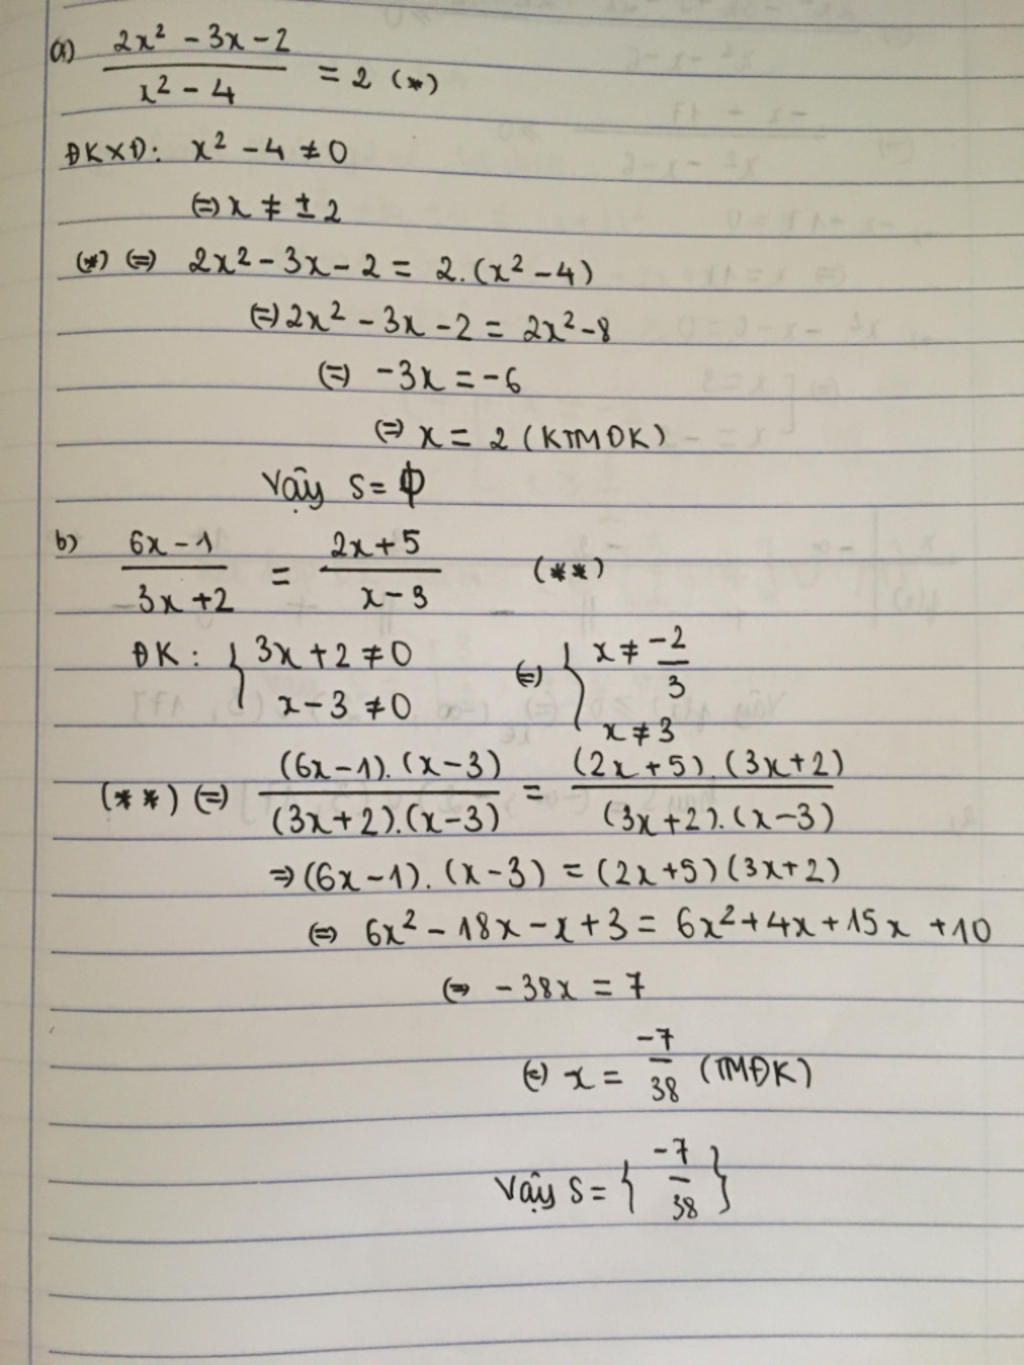 a) (2x² - 3x - 2)/(x² - 4) = 2 (*)
ĐKXĐ: x² - 4 ≠ 0
(=) x ≠ ± 2
(*) (=) 2x² - 3x - 2 = 2.(x² - 4)
(=) 2x² - 3x - 2 = 2x² - 8
(=) -3x = -6
(=) x = 2 (KTMĐK)
Vậy S = ϕ
b) (6x - 1)/(3x + 2) = (2x + 5)/(x - 3) (**)
ĐK: { 3x + 2 ≠ 0 (=) { x ≠ -2/3
x - 3 ≠ 0 x ≠ 3
(**) (=) (6x - 1).(x - 3)/(3x + 2).(x - 3) = (2x + 5).(3x + 2)/(3x + 2).(x - 3)
=> (6x - 1).(x - 3) = (2x + 5)(3x + 2)
(=) 6x² - 18x - x + 3 = 6x² + 4x + 15x + 10
(=) -38x = 7
(=) x = -7/38 (TMĐK)
Vậy S = { -7/38 }